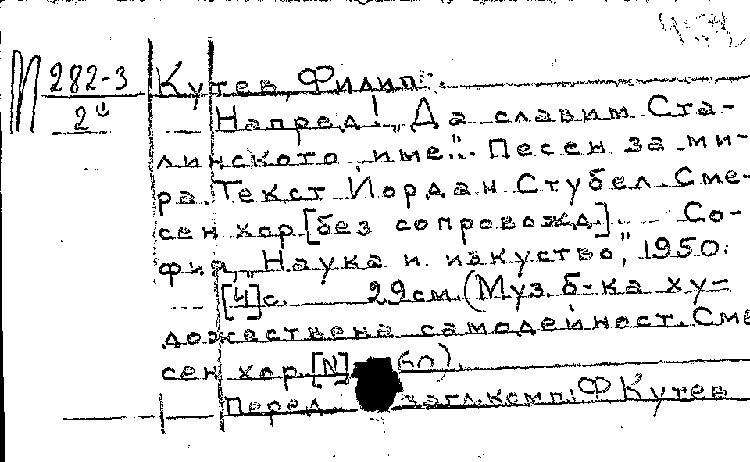 П 282-3
2"
Кутев, Филип.
Напред! „Да славим Ста-
линското име". Песен за ми-
ра. Текст Йордан Стубел. Сме-
сен хор [без сопровожд.]. Со-
фия, „Наука и изкуство", 1950.
[4]с. 29см. (Муз. б-ка ху-
дожествена самодейност. Сме
сен хор. [N] бл).
Перед загл. комп: Ф Кутев